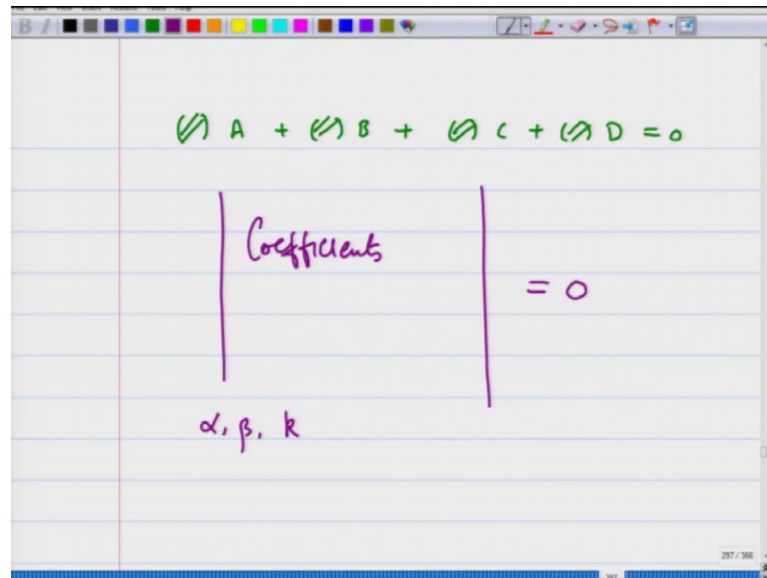 (//) A + (//) B + (//) C + (//) D = 0
Coefficients
= 0
α, β, k
297 / 366